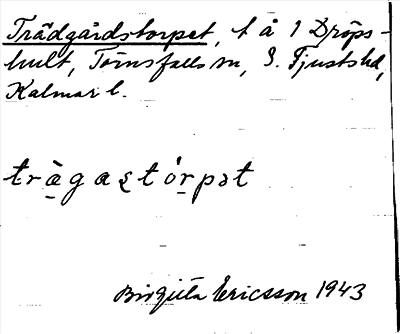 Trädgårdstorpet, t å 1 Dröps-
hult, Törnsfalls sn, S. Tjusts hd,
Kalmar l.
trä̀gaṣtó̱rpət
Birgitta Ericsson 1943